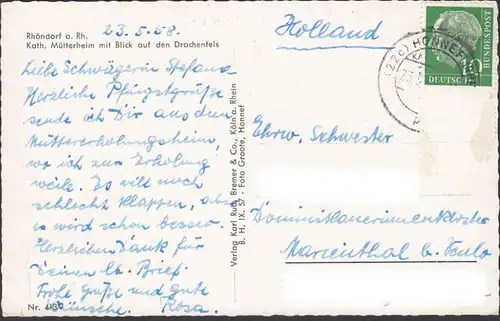 23.5.58.
Rhöndorf a. Rh.
Kath. Mütterheim mit Blick auf den Drachenfels
Liebe Schwägerin Stefana
Herzliche Pfingstgrüße
sende ich Dir aus dem
Müttererholungsheim,
wo ich zur Erholung
weile. Es will noch
schlecht klappen, aber
es wird schon besser.
Herzlichen Dank für
Deinen lb. Brief.
Frohe Grüße und gute
Wünsche. Rosa.
Nr.
Verlag Karl Rud. Bremer & Co., Köln a. Rhein
B. H. IX. 57 · Foto Groote, Honnef
Holland
(22c) HONNEF
23.
10
DEUTSCHE
BUNDESPOST
Ehrw. Schwester
Dominikanerinnenkloster
Marienthal b. Venlo